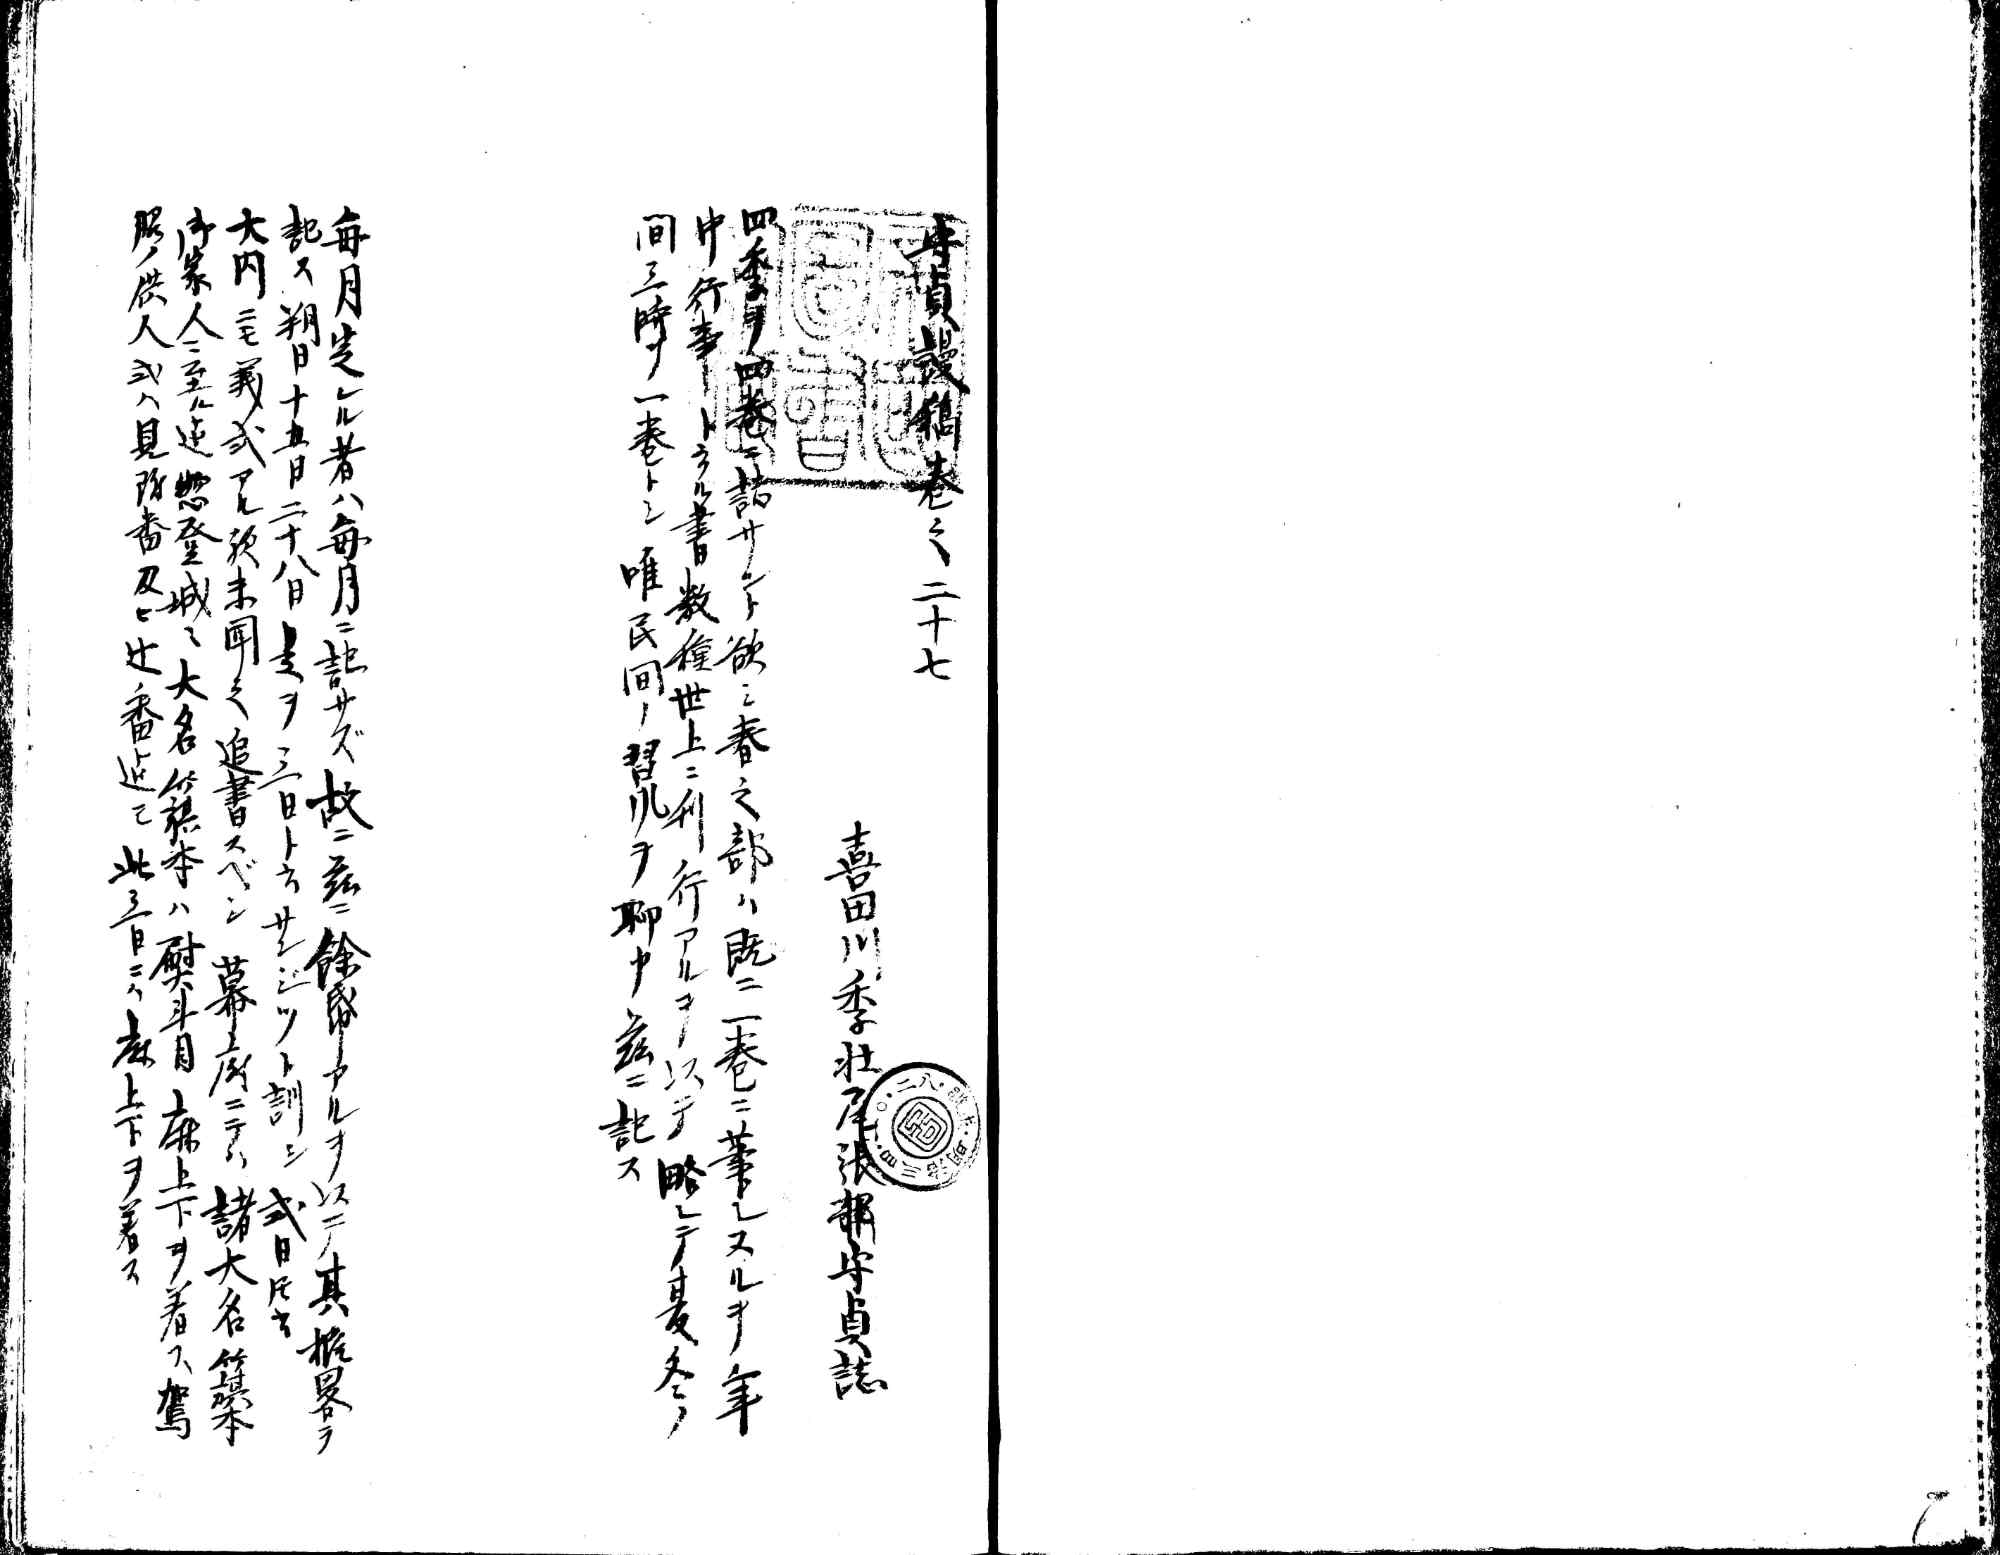 守貞謾稿巻之二十七
喜田川季荘尾張輔守貞誌
四季ヲ四巻ニ誌サント欲シ春之部ハ既ニ一巻ニ筆シヌルヲ年
中行事ト云ル書数種世上ニ刊行アルヲ以テ略シテ夏冬ノ
間三時ヲ一巻トシ唯民間ノ習風ヲ聊カ茲ニ記ス
毎月定レル者ハ毎月ニ記サズ故ニ茲ニ餘帋アルヲ以テ其概畧ヲ
記ス朔日十五日二十八日是ヲ三日ト云サンジツト訓シ式日トモ云
大内ニモ義式アル欤未聞之追書スベシ幕府ニテハ諸大名籏本
御家人ニ至ル迠惣登城シ大名籏本ハ熨斗目麻上下ヲ着ス駕
脇ノ供人或ハ見附番及ヒ辻番迠モ此三日ニハ麻上下ヲ着ス